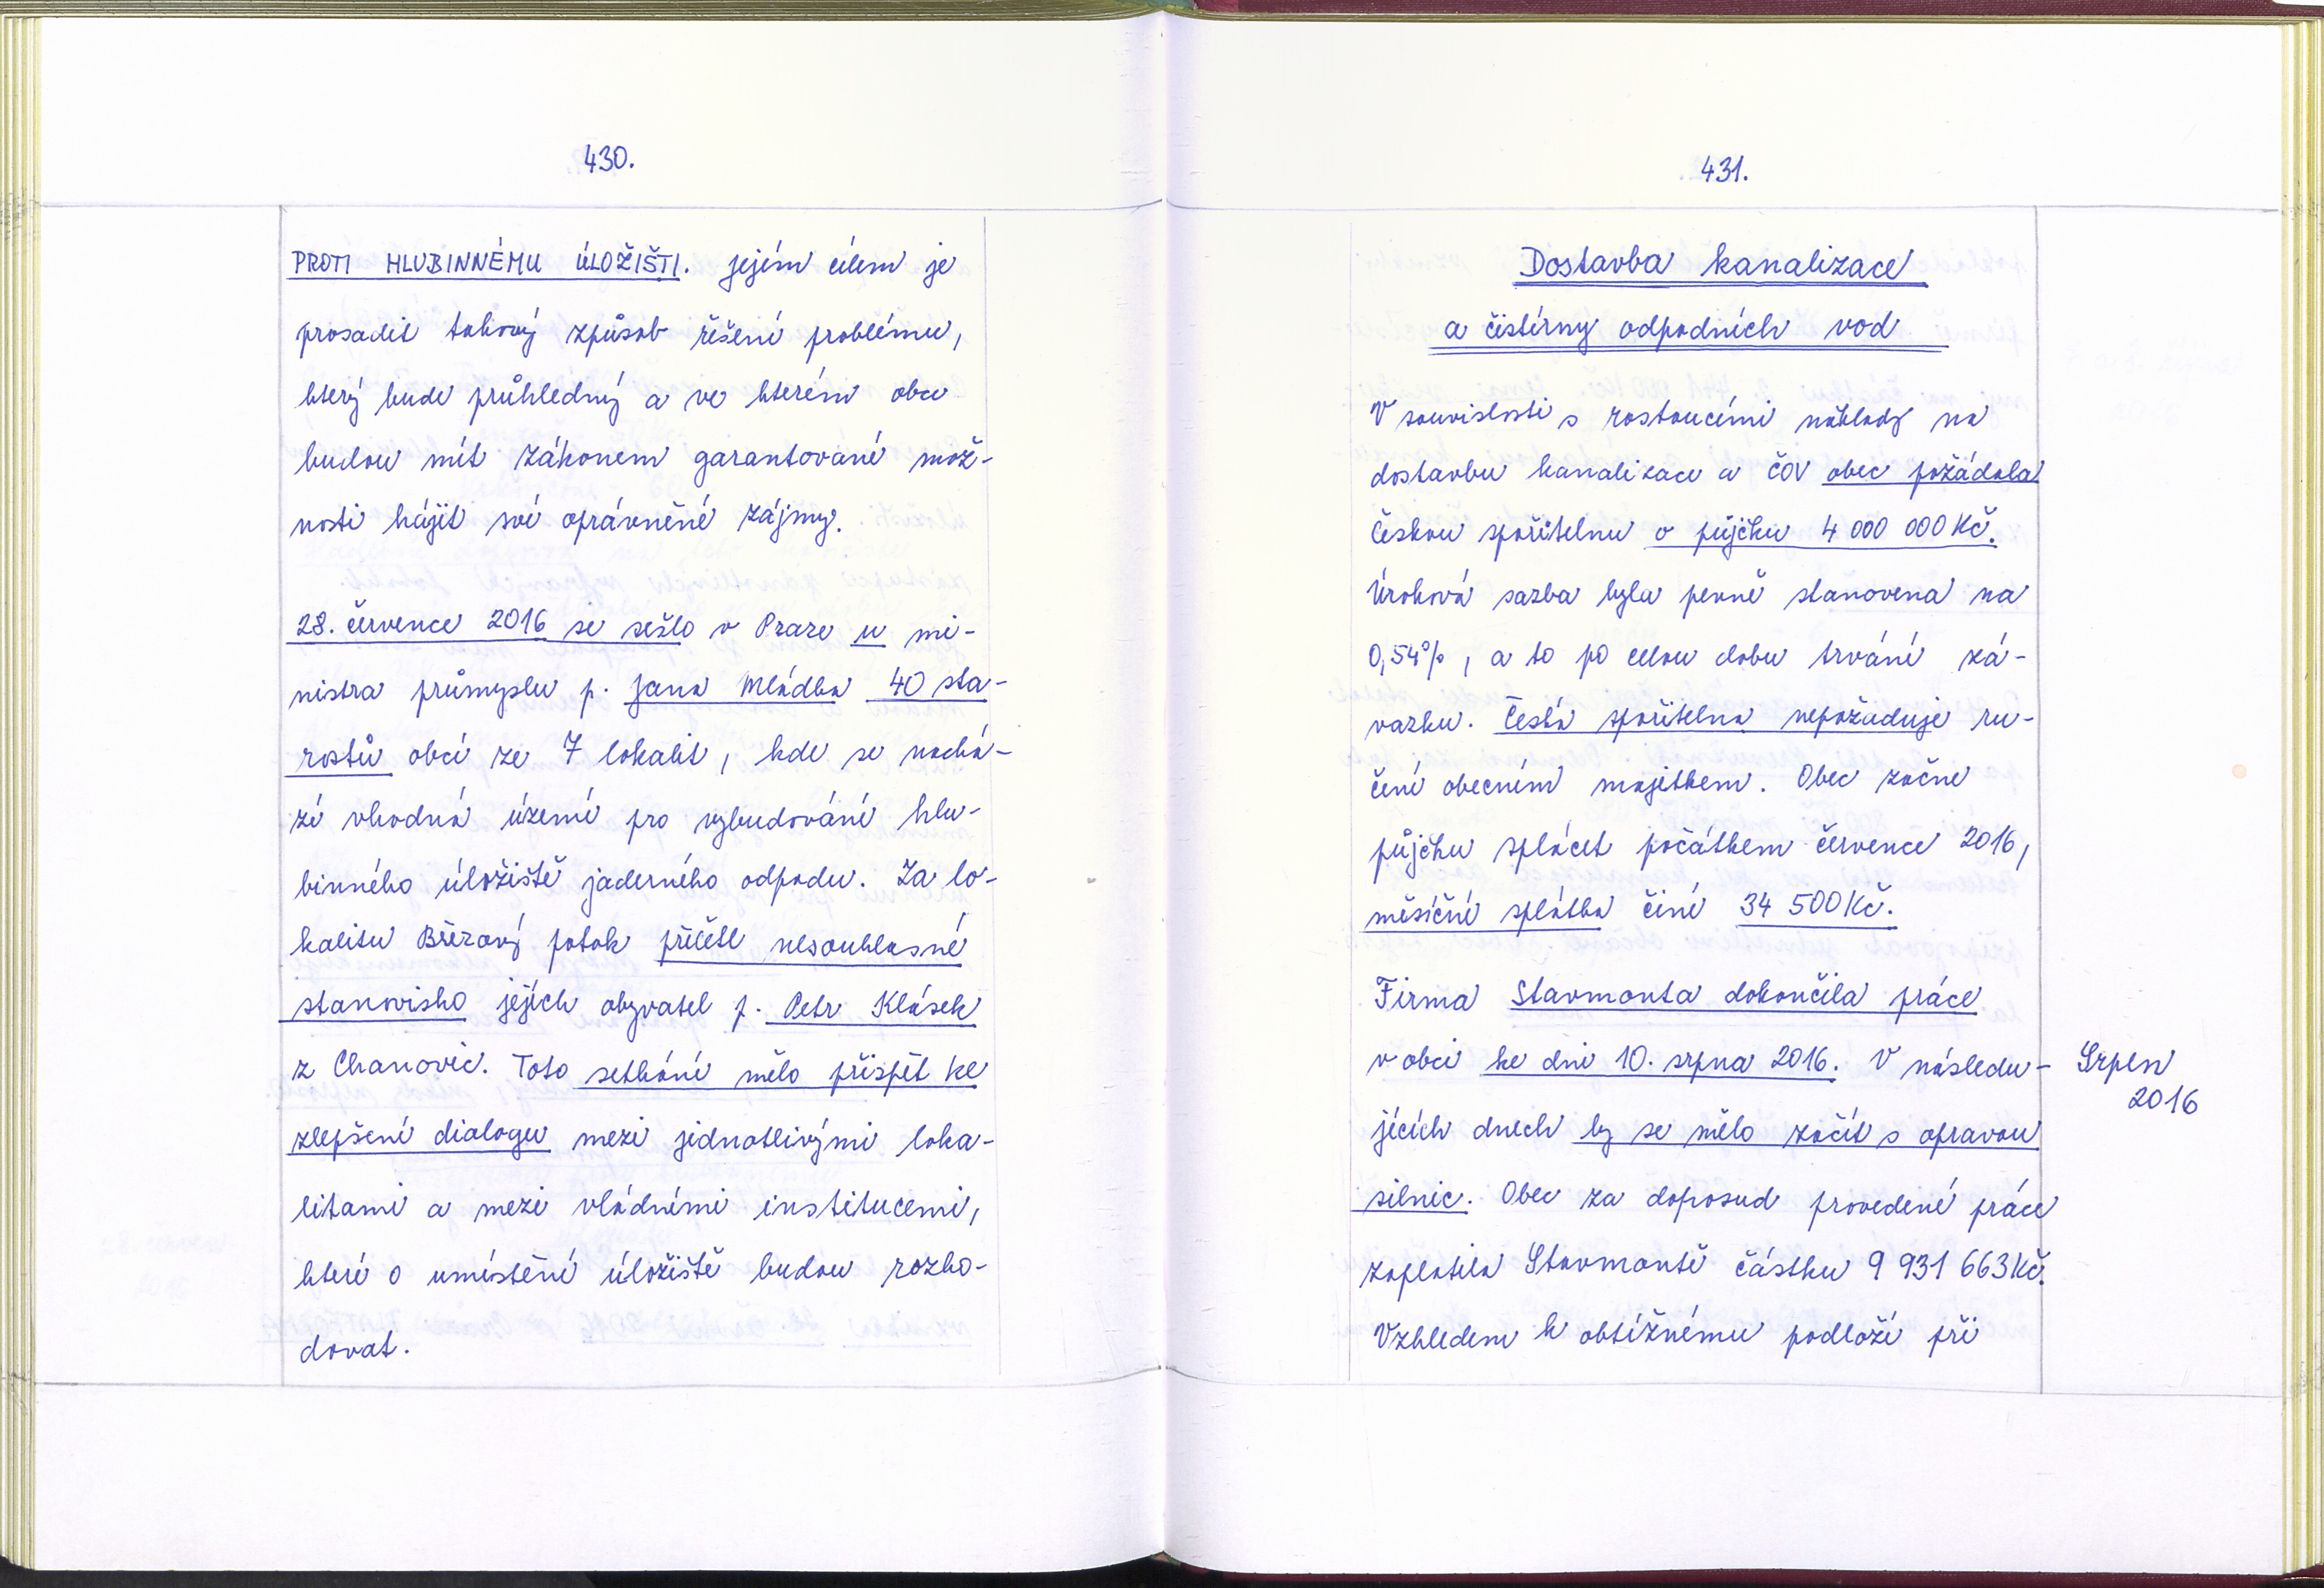 430.
PROTI HLUBINNÉMU ÚLOŽIŠTI. Jejím cílem je
prosadit takový způsob řešení problému,
který bude průhledný a ve kterém obce
budou mít zákonem garantované mož-
nosti hájit své oprávněné zájmy.
28. července 2016 se sešlo v Praze u mi-
nistra průmyslu p. Jana Mládka 40 sta-
rostů obcí ze 7 lokalit, kde se nachá-
zí vhodná území pro vybudování hlu-
binného úložiště jaderného odpadu. Za lo-
kalitu Březový potok přečetl nesouhlasné
stanovisko jejích obyvatel p. Petr Klásek
z Chanovic. Toto setkání mělo přispět ke
zlepšení dialogu mezi jednotlivými loka-
litami a mezi vládními institucemi,
které o umístění úložiště budou rozho-
dovat.
431.
Dostavba kanalizace
a čistírny odpadních vod
V souvislosti s rostoucími náklady na
dostavbu kanalizace a ČOV obec požádala
Českou spořitelnu o půjčku 4 000 000 Kč.
Úroková sazba byla pevně stanovena na
0,54%, a to po celou dobu trvání zá-
vazku. Česká spořitelna nepožaduje ru-
čení obecním majetkem. Obec začne
půjčku splácet počátkem července 2016,
měsíční splátka činí 34 500 Kč.
Firma Stavmonta dokončila práce
v obci ke dni 10. srpna 2016. V následu-
Srpen
2016
jících dnech by se mělo začít s opravou
silnic. Obec za doposud provedené práce
zaplatila Stavmontě částku 9 931 663 Kč.
Vzhledem k obtížnému podloží při